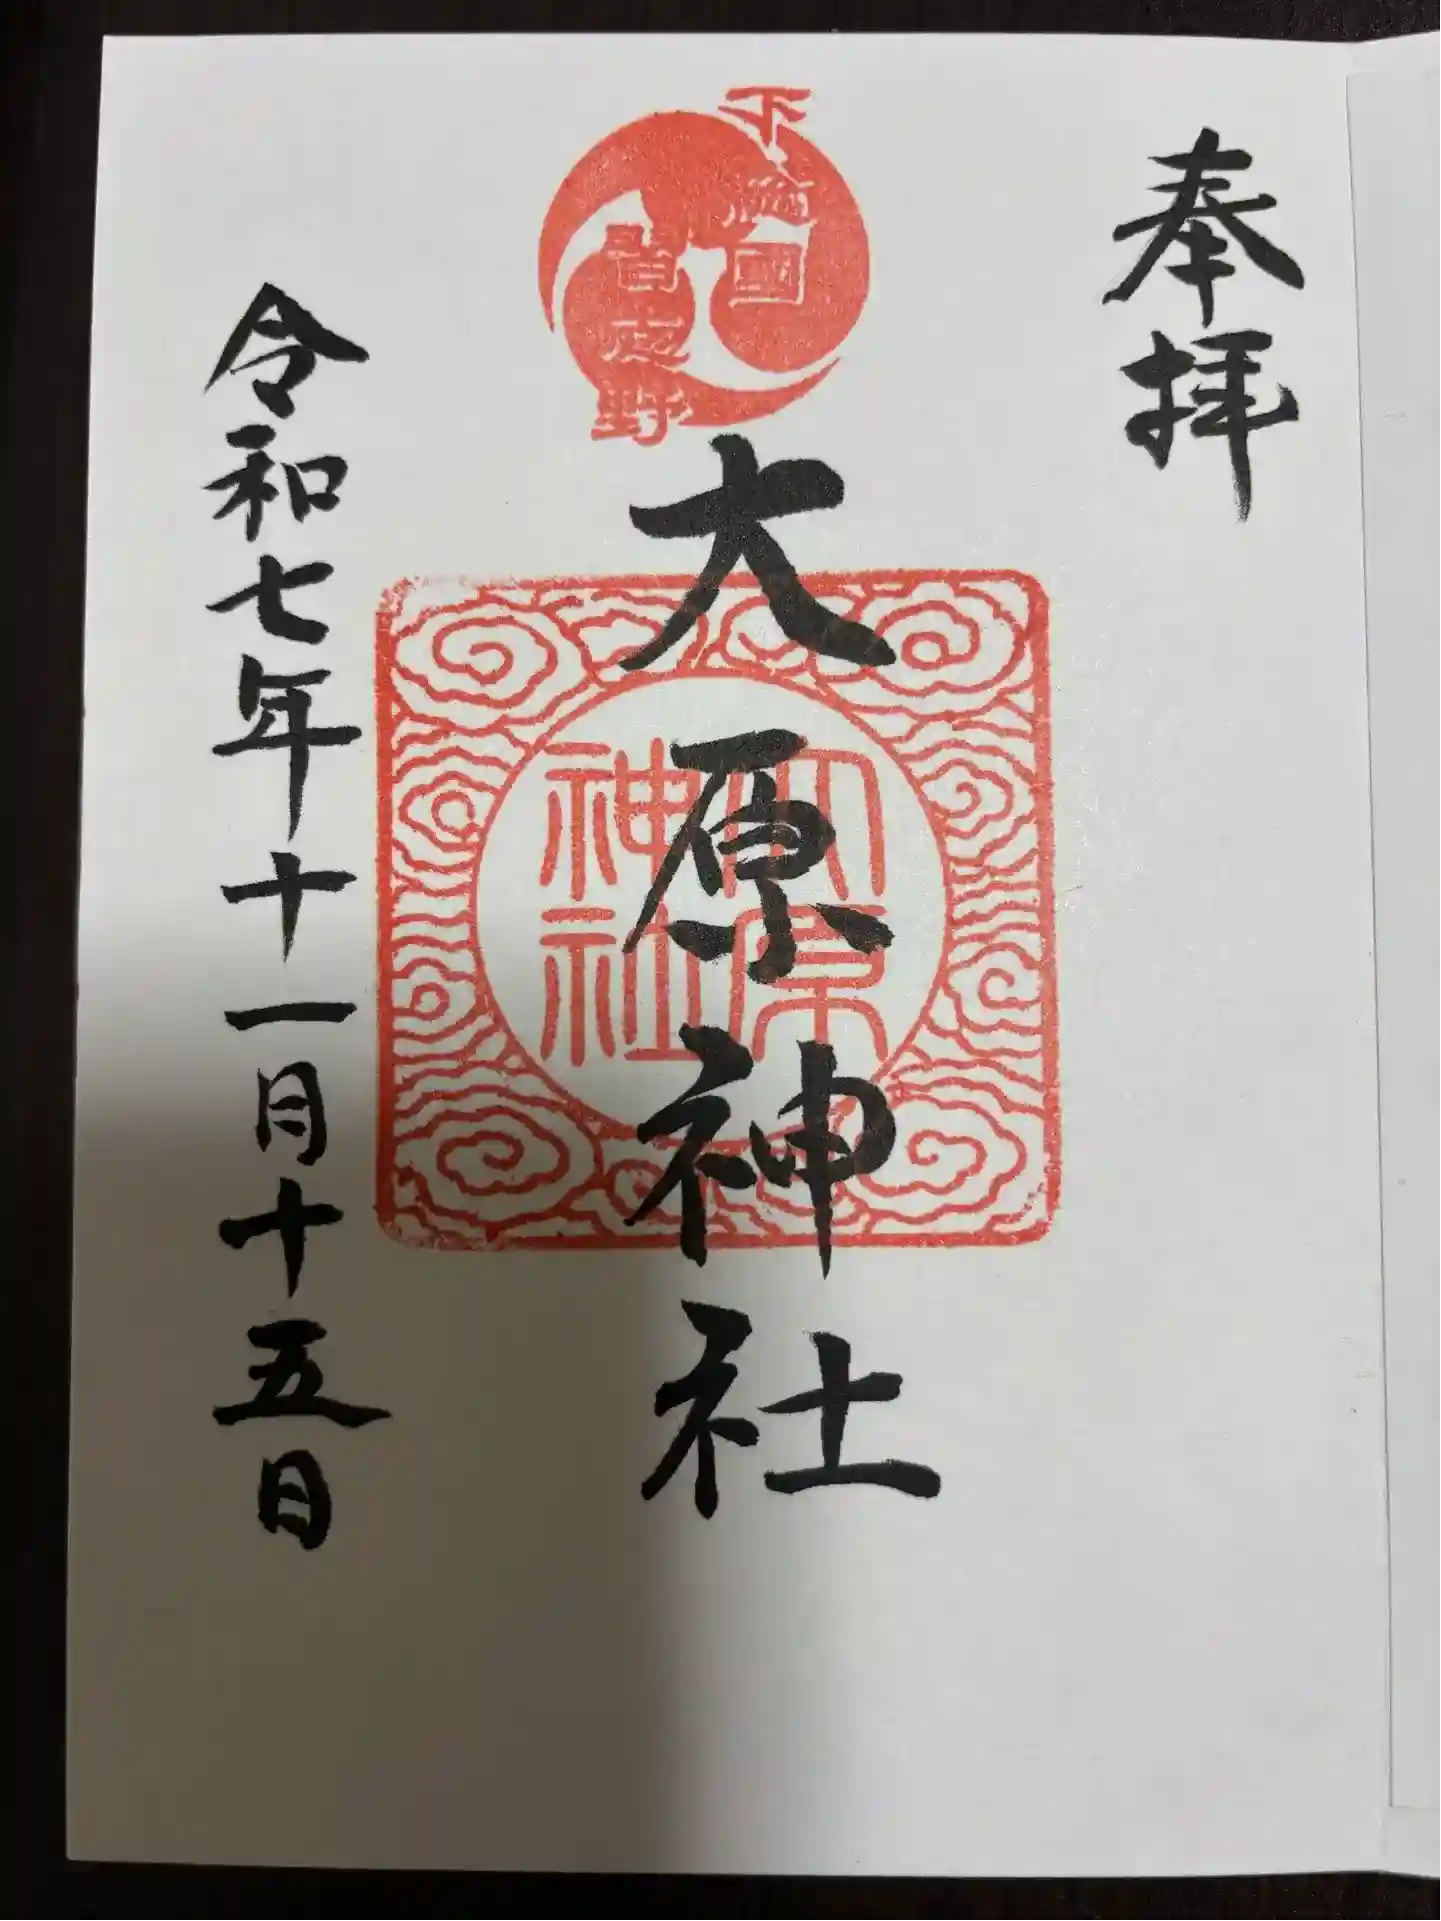 奉拝
下總國
習志野
大原神社
大原
神社
令和七年十一月十五日